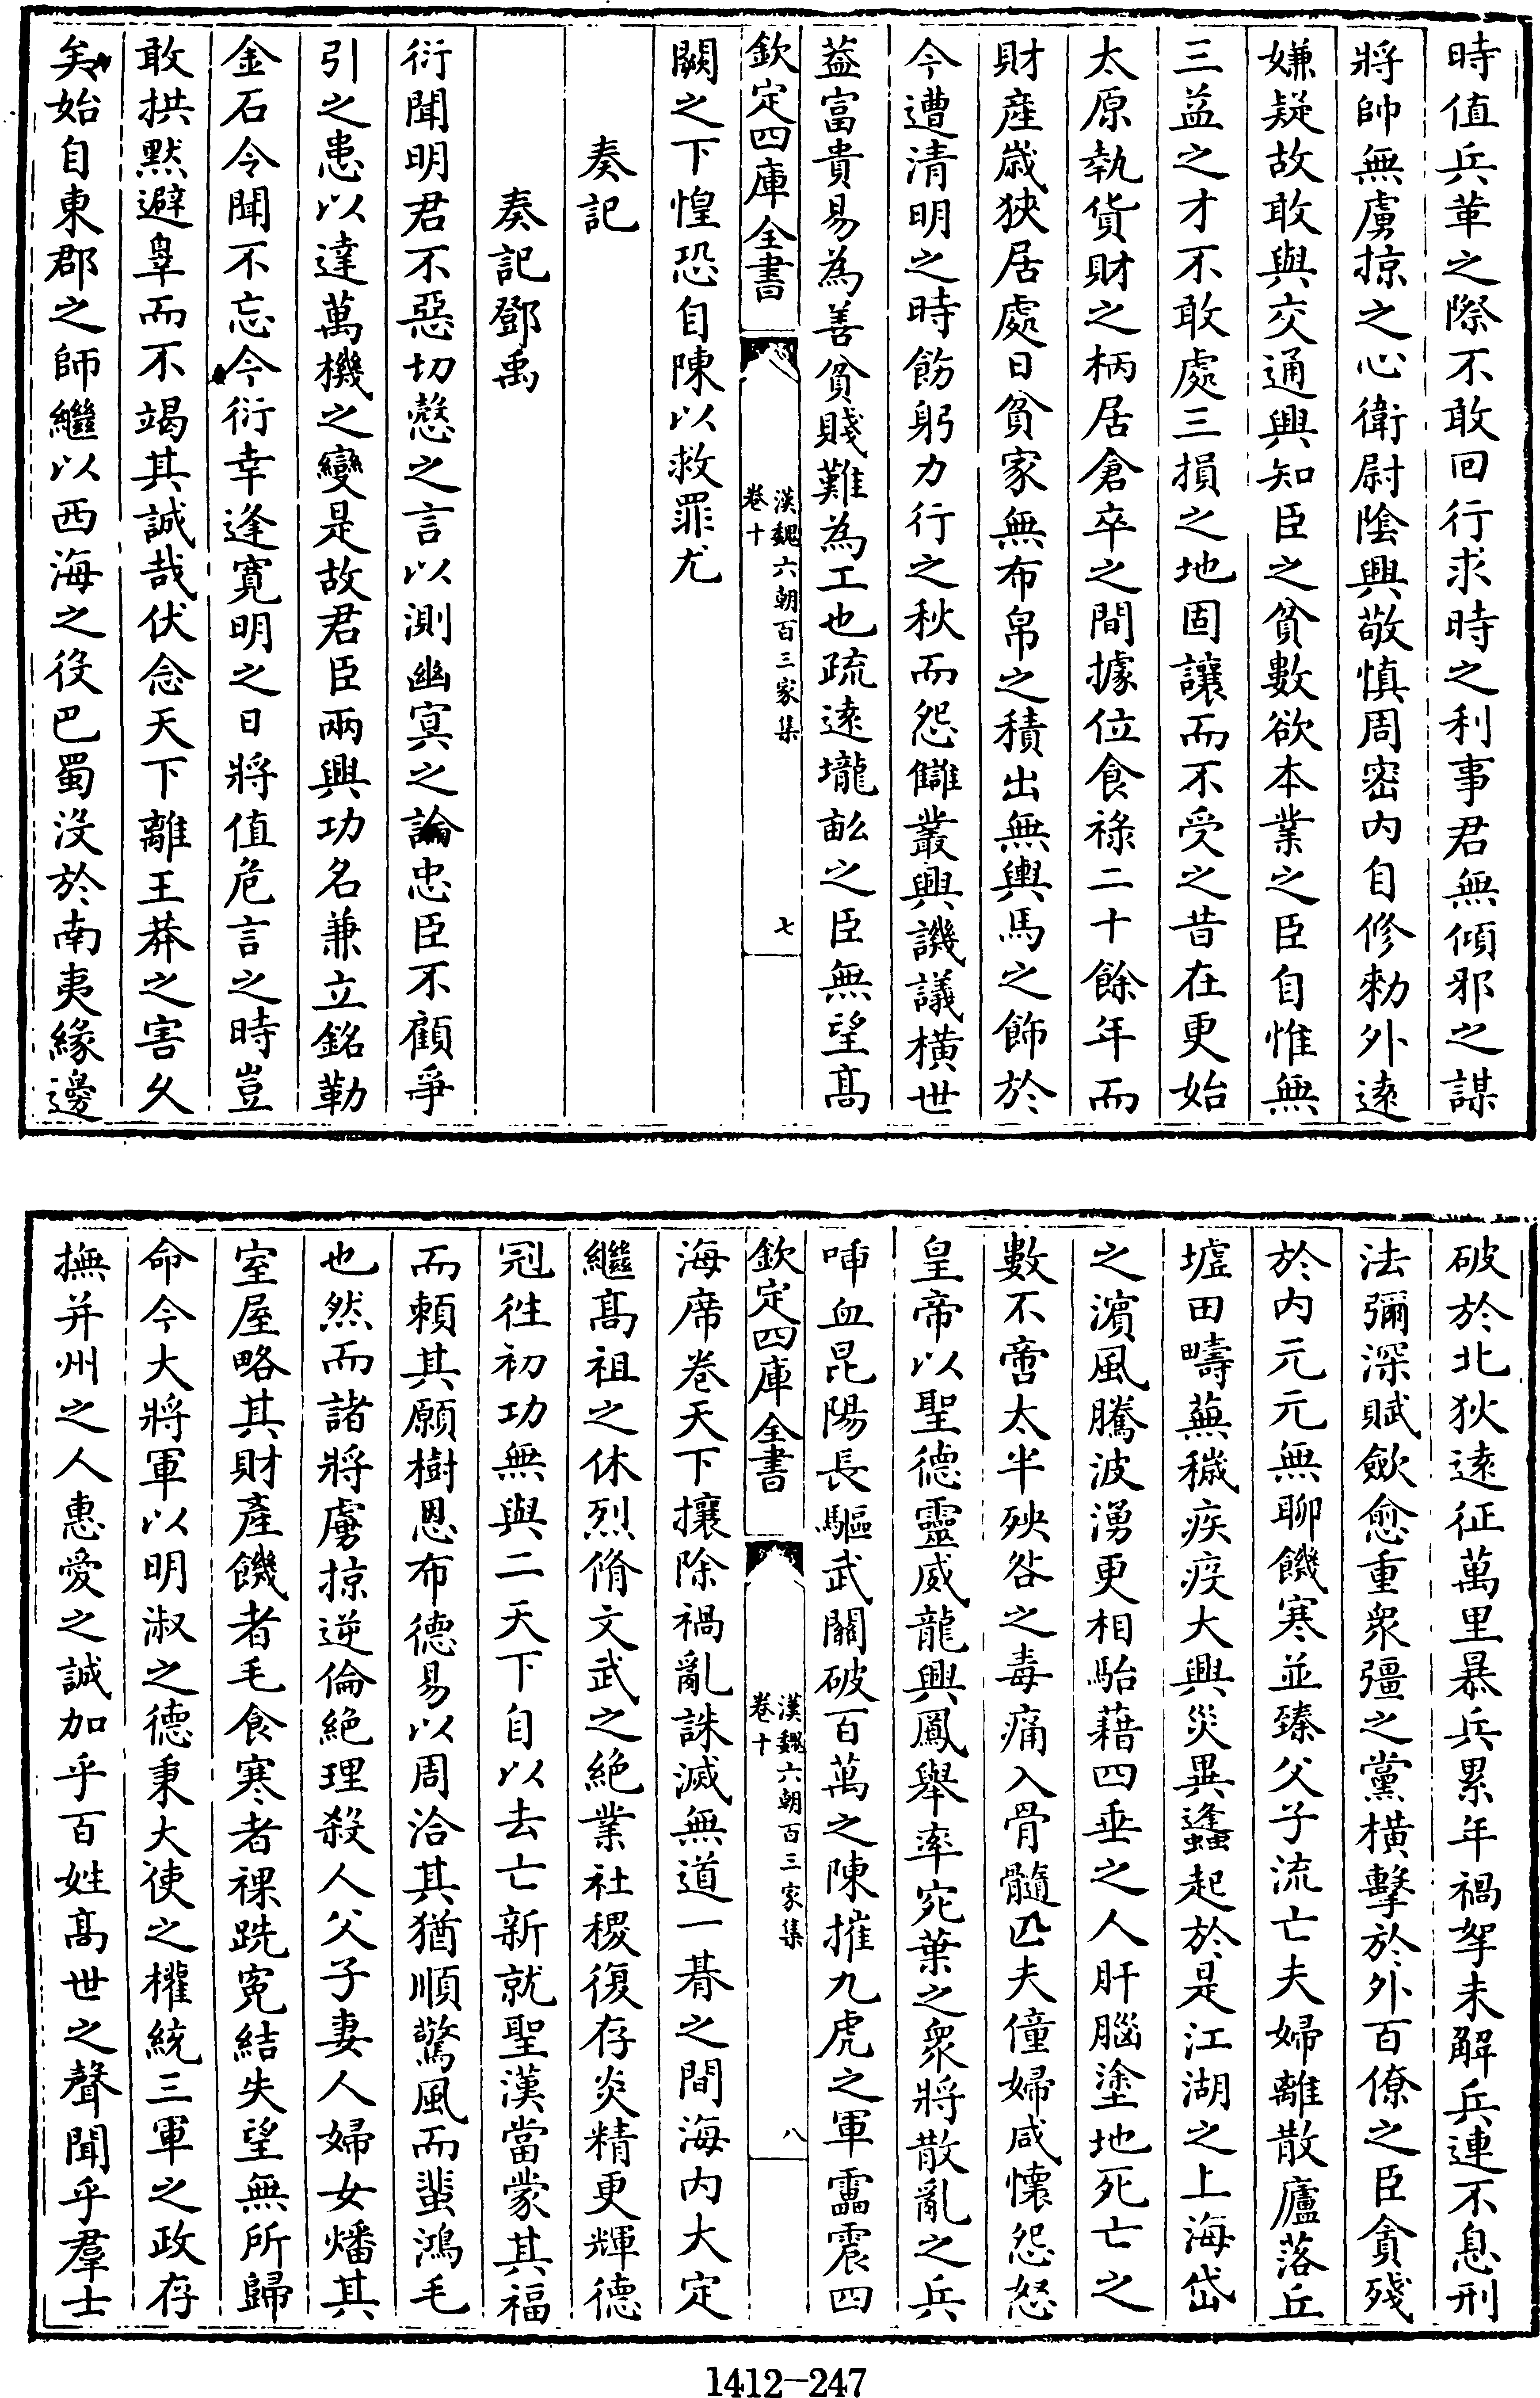 時值兵革之際不敢回行求時之利事君無傾邪之謀
將帥無虜掠之心衛尉陰興敬慎周密内自修勑外遠
嫌疑故敢與交通興知臣之貧數欲本業之臣自惟無
三益之才不敢處三損之地固讓而不受之昔在更始
太原執貨財之柄居倉卒之間據位食祿二十餘年而
財產嵗狹居處日貧家無布帛之積出無輿馬之飾於
今遭清明之時飭躬力行之秋而怨讎叢興譏議橫世
葢富貴易為善貧賤難為工也疏逺壠畝之臣無望髙
欽定四庫全書
漢魏六朝百三家集
卷十
七
闕之下惶恐自陳以救罪尤
奏記
奏記鄧禹
衍聞明君不惡切慤之言以測幽冥之論忠臣不顧爭
引之患以達萬機之變是故君臣兩興功名兼立銘勒
金石令聞不忘今衍幸逢寛明之日將值危言之時豈
敢拱黙避辠而不竭其誠哉伏念天下離王莽之害久
矣始自東郡之師繼以西海之役巴蜀没於南夷緣邊
破於北狄逺征萬里暴兵累年禍挐未解兵連不息刑
法彌深賦歛愈重衆彊之黨橫擊於外百僚之臣貪殘
於内元元無聊饑寒並臻父子流亡夫婦離散廬落丘
墟田疇蕪穢疾疫大興災異蠭起於是江湖之上海岱
之濵風騰波湧更相駘藉四垂之人肝腦塗地死亡之
數不啻太半殃咎之毒痛入骨髓匹夫僮婦咸懷怨怒
皇帝以聖德靈威龍興鳳舉率宛葉之衆將散亂之兵
喢血昆陽長驅武關破百萬之陳摧九虎之軍靁震四
欽定四庫全書
漢魏六朝百三家集
卷十
八
海席卷天下攘除禍亂誅滅無道一朞之間海内大定
繼髙祖之休烈脩文武之絶業社稷復存炎精更輝德
冠徃初功無與二天下自以去亡新就聖漢當蒙其福
而頼其願樹恩布德易以周洽其猶順驚風而蜚鴻毛
也然而諸將虜掠逆倫絶理殺人父子妻人婦女燔其
室屋略其財產饑者毛食寒者裸跣寃結失望無所歸
命今大將軍以明淑之德秉大使之權統三軍之政存
撫并州之人惠愛之誠加乎百姓髙世之聲聞乎羣士
1412-247